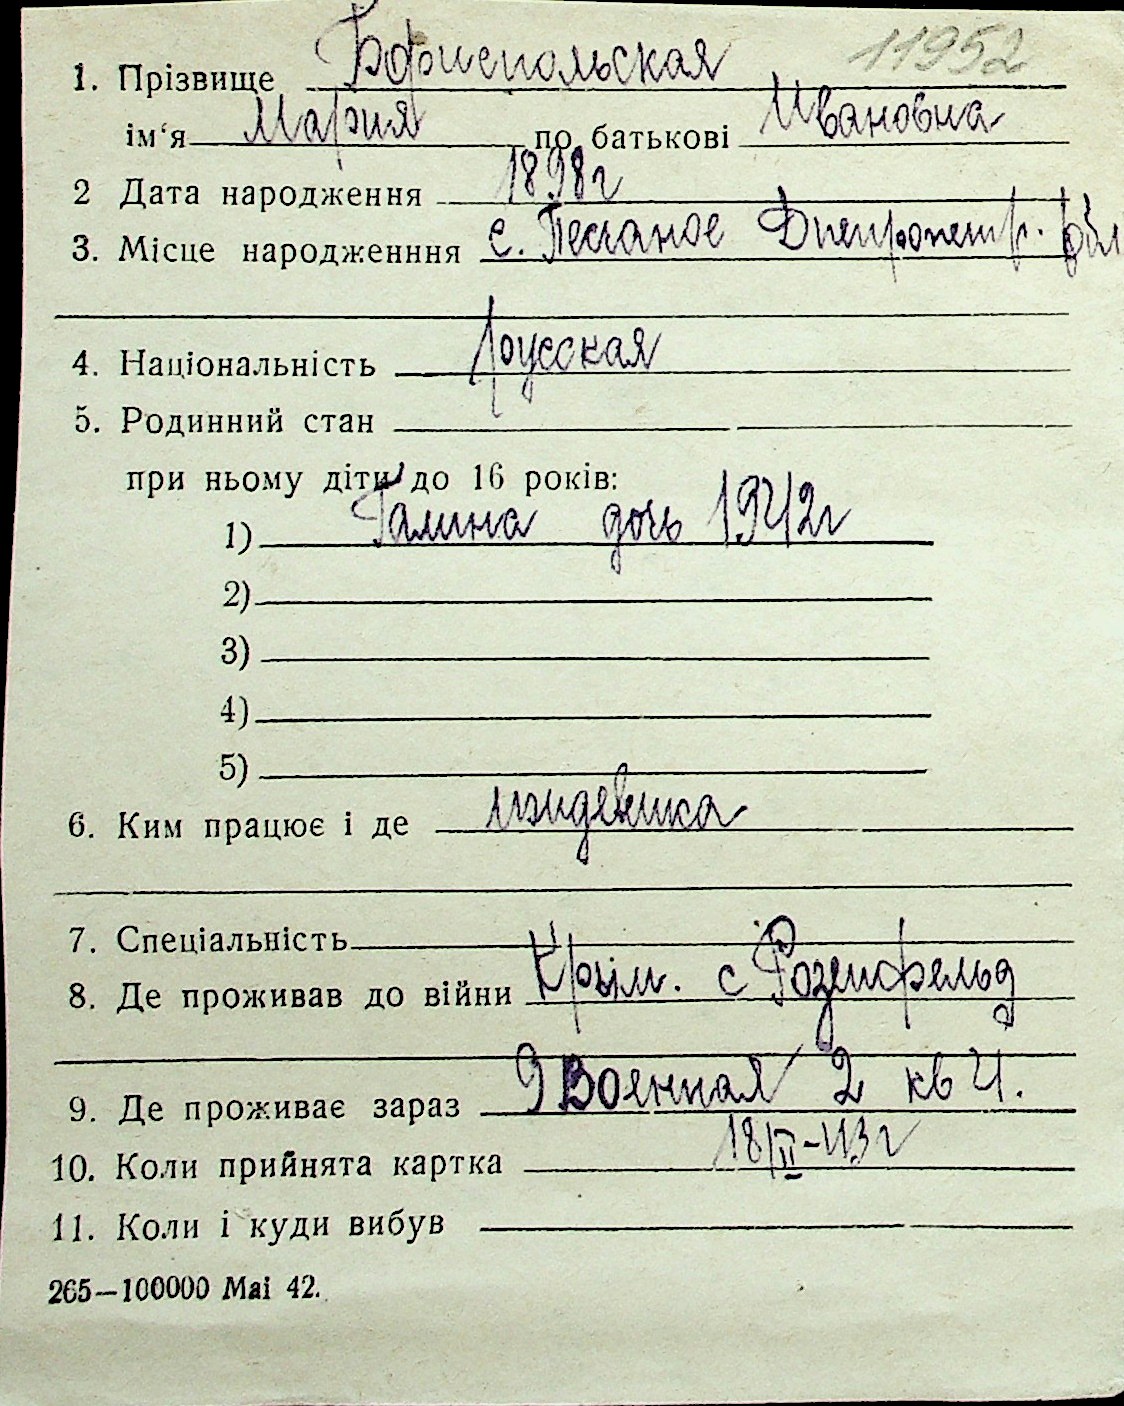 11952
1. Прізвище Бориспольская
ім‘я Мария по батькові Ивановна
2 Дата народження 1898г
3. Місце народженння с. Песчаное Днепропетр. обл
4. Національність русская
5. Родинний стан
при ньому діти до 16 років:
1) Галина дочь 1942г
2)
3)
4)
5)
6. Ким працює і де иждевика
7. Спеціальність
8. Де проживав до війни Крым. с Розенфельд
9. Де проживає зараз 9 Военная 2 кв 4.
10. Коли прийнята картка 18/II-43г
11. Коли і куди вибув
265—100000 Mai 42.